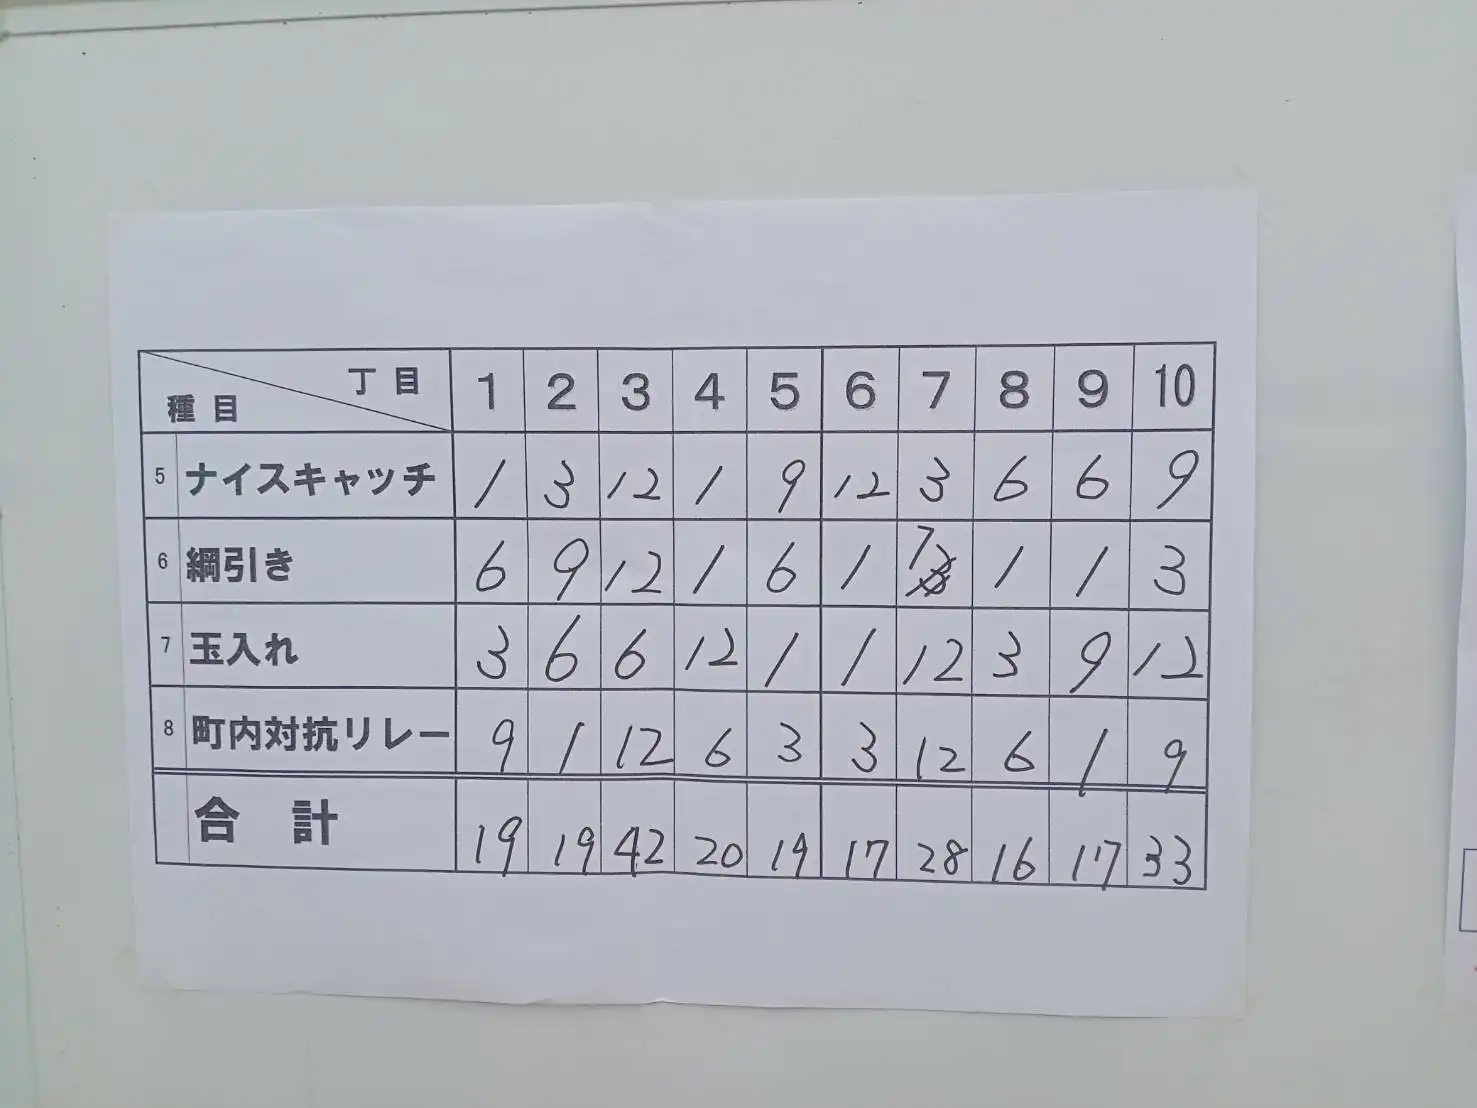 丁目
種目
1 2 3 4 5 6 7 8 9 10
5 ナイスキャッチ 1 3 12 1 9 12 3 6 6 9
6 綱引き 6 9 12 1 6 1 1 1 3
7 玉入れ 3 6 6 12 1 1 12 3 9 12
8 町内対抗リレー 9 1 12 6 3 3 12 6 1 9
合計 19 19 42 20 19 17 28 16 17 33